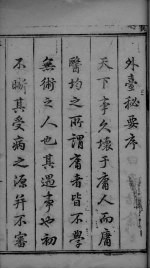 外臺秘要序
天下事久壞于庸人而庸
醫均之所謂庸者皆不學
無術之人也其遇事也初
不晰其受病之源并不審